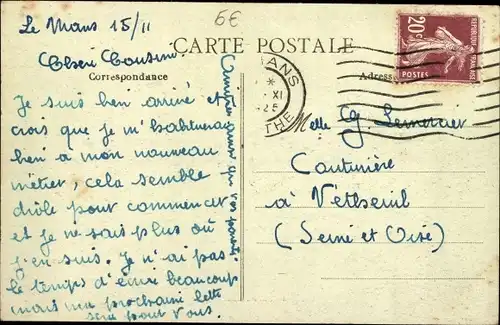 Le Mans 15/11
6€
Chère Cousine
CARTE POSTALE
Correspondance
Adresse
20c
REPUBLIQUE FRANÇAISE
POSTES
MANS
XI
THE
Je suis bien arrivé et
crois que je m'habituerai
bien à mon nouveau
métier, cela semble
drôle pour commencer
et je ne sais plus où
j'en suis. Je n'ai pas
le temps d'écrire beaucoup
mais ma prochaine lettre
sera pour vous.
Amitiés ainsi qu'à vos parents
Melle G. Lemercier
Couturière
à Vétheuil
(Seine et Oise)